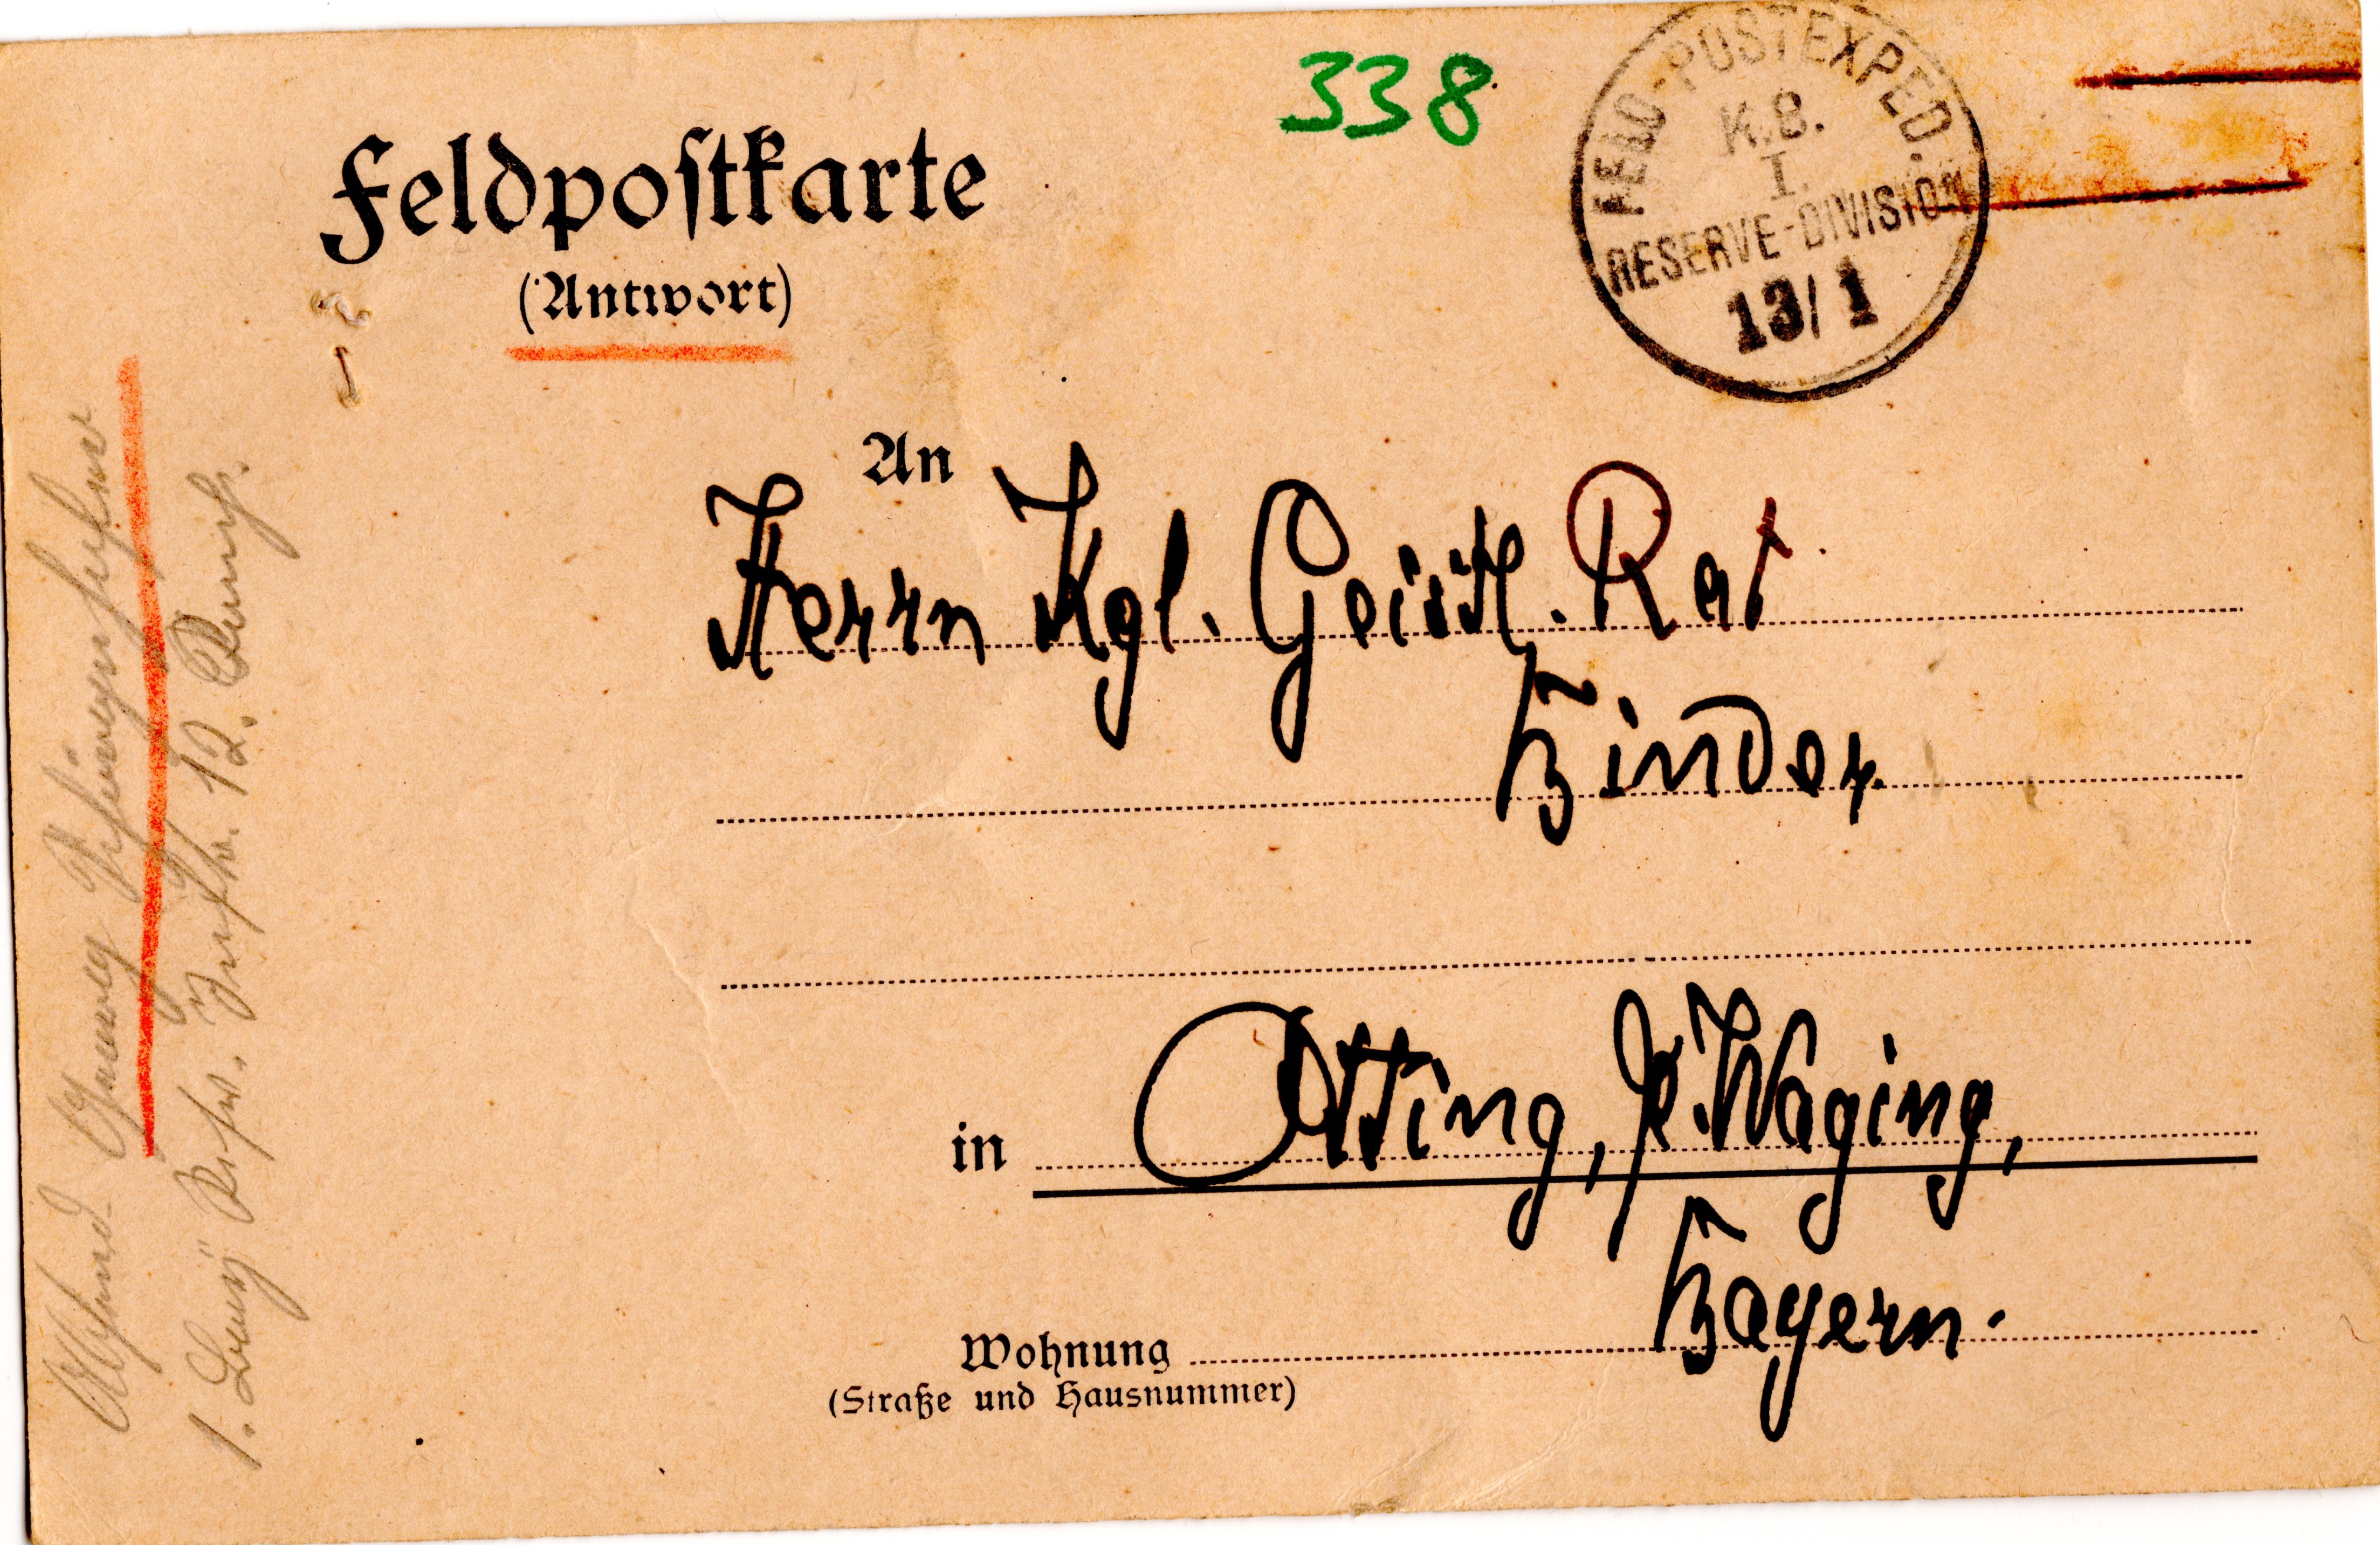 338
FELD-POSTEXPED.
K.B.
I.
RESERVE-DIVISION
13/1
Feldpostkarte
(Antwort)
An
Herrn Kgl. Geistl. Rat
Binder.
in Otting, P. Waging,
Bayern.
Wohnung
(Straße und Hausnummer)
Absend. Georg
1. bayr. Res. Inftr. 12. Komp.